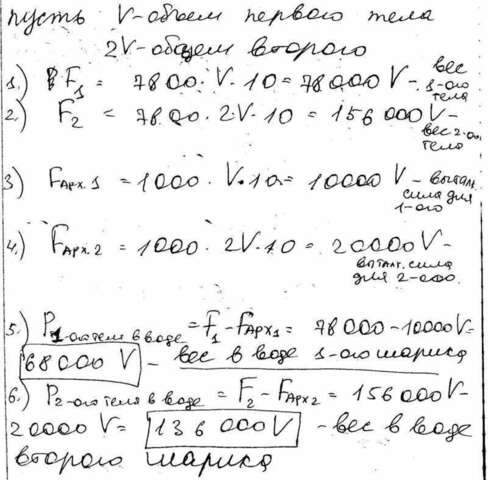 пусть V-объем первого тела
2V-объем второго
1.) F₁ = 7800·V·10=78000V- вес 1-ого тела
2.) F₂ = 7800·2V·10=156000V- вес 2-ого тело
3) Fарх.1 =1000·V·10=10000V- выталк. сила для 1-ого
4.) Fарх.2 =1000·2V·10=20000V- вытал. сила для 2-ого.
5.) P1-ого тела в воде =F₁-Fарх1= 78000-10000V=
68000V - вес в воде 1-ого шарика
6.) P2-ого тела в воде =F₂-Fарх2=156000V-
20000V= 136000V -вес в воде
второго шарика